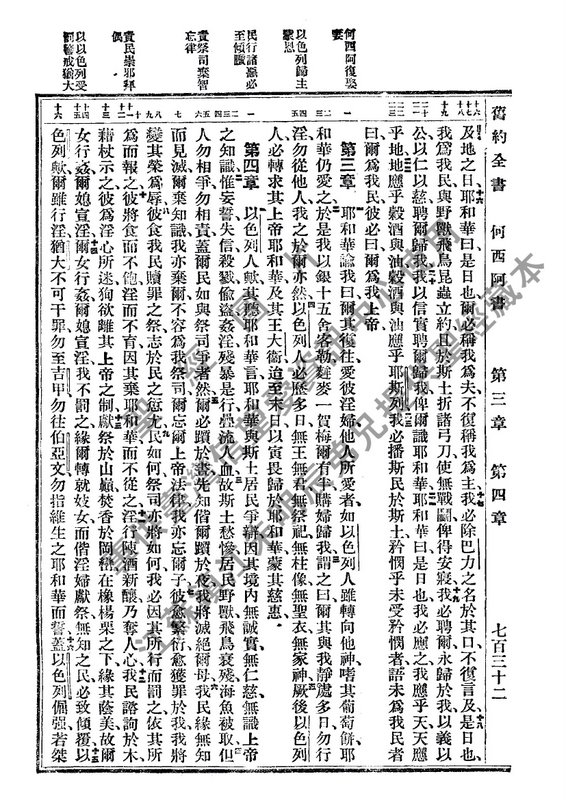 舊約全書 何西阿書 第三章 第四章 七百三十二
何西阿復娶妻
以色列歸主蒙恩
民行諸惡必至傾敗
責祭司棄智忘律
責民崇邪拜偶
以以色列受罰警戒猶大
及地之日耶和華曰是日也爾必稱我爲夫不復稱我爲主我必除巴力之名於其口不復言及是日也
我爲我民與野獸飛鳥昆蟲立約且於斯土折諸弓刀使無戰鬭俾得安寢我必聘爾永歸於我以義以
公以仁以慈聘爾歸我我以信實聘爾歸我俾爾識耶和華耶和華曰是日也我必應之我應乎天天應
乎地地應乎穀酒與油穀酒與油應乎耶斯列我必播斯民於斯土矜憫乎未受矜憫者語未爲我民者
曰爾爲我民彼必曰爾爲我上帝
第三章 耶和華諭我曰爾其復往愛彼淫婦他人所愛者如以色列人雖轉向他神嗜其葡萄餅耶
和華仍愛之於是我以銀十五舍客勒麰麥一賀梅爾有半購婦歸我謂之曰爾其與我靜處多日勿行
淫勿從他人我之於爾亦然以色列人必歷多日無王無君無祭祀無柱像無聖衣無家神厥後以色列
人必轉求其上帝耶和華及其王大衞迨至末日以寅畏歸於耶和華蒙其慈惠
第四章 以色列人歟其應耶和華言耶和華與斯土居民爭辯因其境內無誠實無仁慈無識上帝
之知識惟妄誓失信殺戮偷盜姦淫殘暴是行疊流人血故斯土愁慘居民野獸飛鳥衰殘海魚被取但
人勿相爭勿相責蓋爾民如與祭司爭者然爾必躓於晝先知偕爾躓於夜我將滅絕爾母我民緣無知
而見滅爾棄知識我亦棄爾不容爲我祭司爾忘爾上帝法律我亦忘爾子彼愈繁衍愈獲罪於我我將
變其榮爲辱彼食我民贖罪之祭志於民之愆尤民如何祭司亦將如何我必因其行而罰之依其所
爲而報之彼將食而不飽淫而不育因其棄耶和華而不從之淫行陳酒新釀乃奪人心我民諮詢於木
藉杖示之彼爲淫心所迷狥欲離其上帝之制獻祭於山巔焚香於岡巒在橡楊栗之下緣其蔭美故爾
女行姦爾媳宣淫爾女行姦爾媳宣淫我不罰之緣爾轉就妓女而偕淫婦獻祭無知之民必致傾覆以
色列歟爾雖行淫猶大不可干罪勿至吉甲勿往伯亞文勿指維生之耶和華而誓蓋以色列倔强若桀